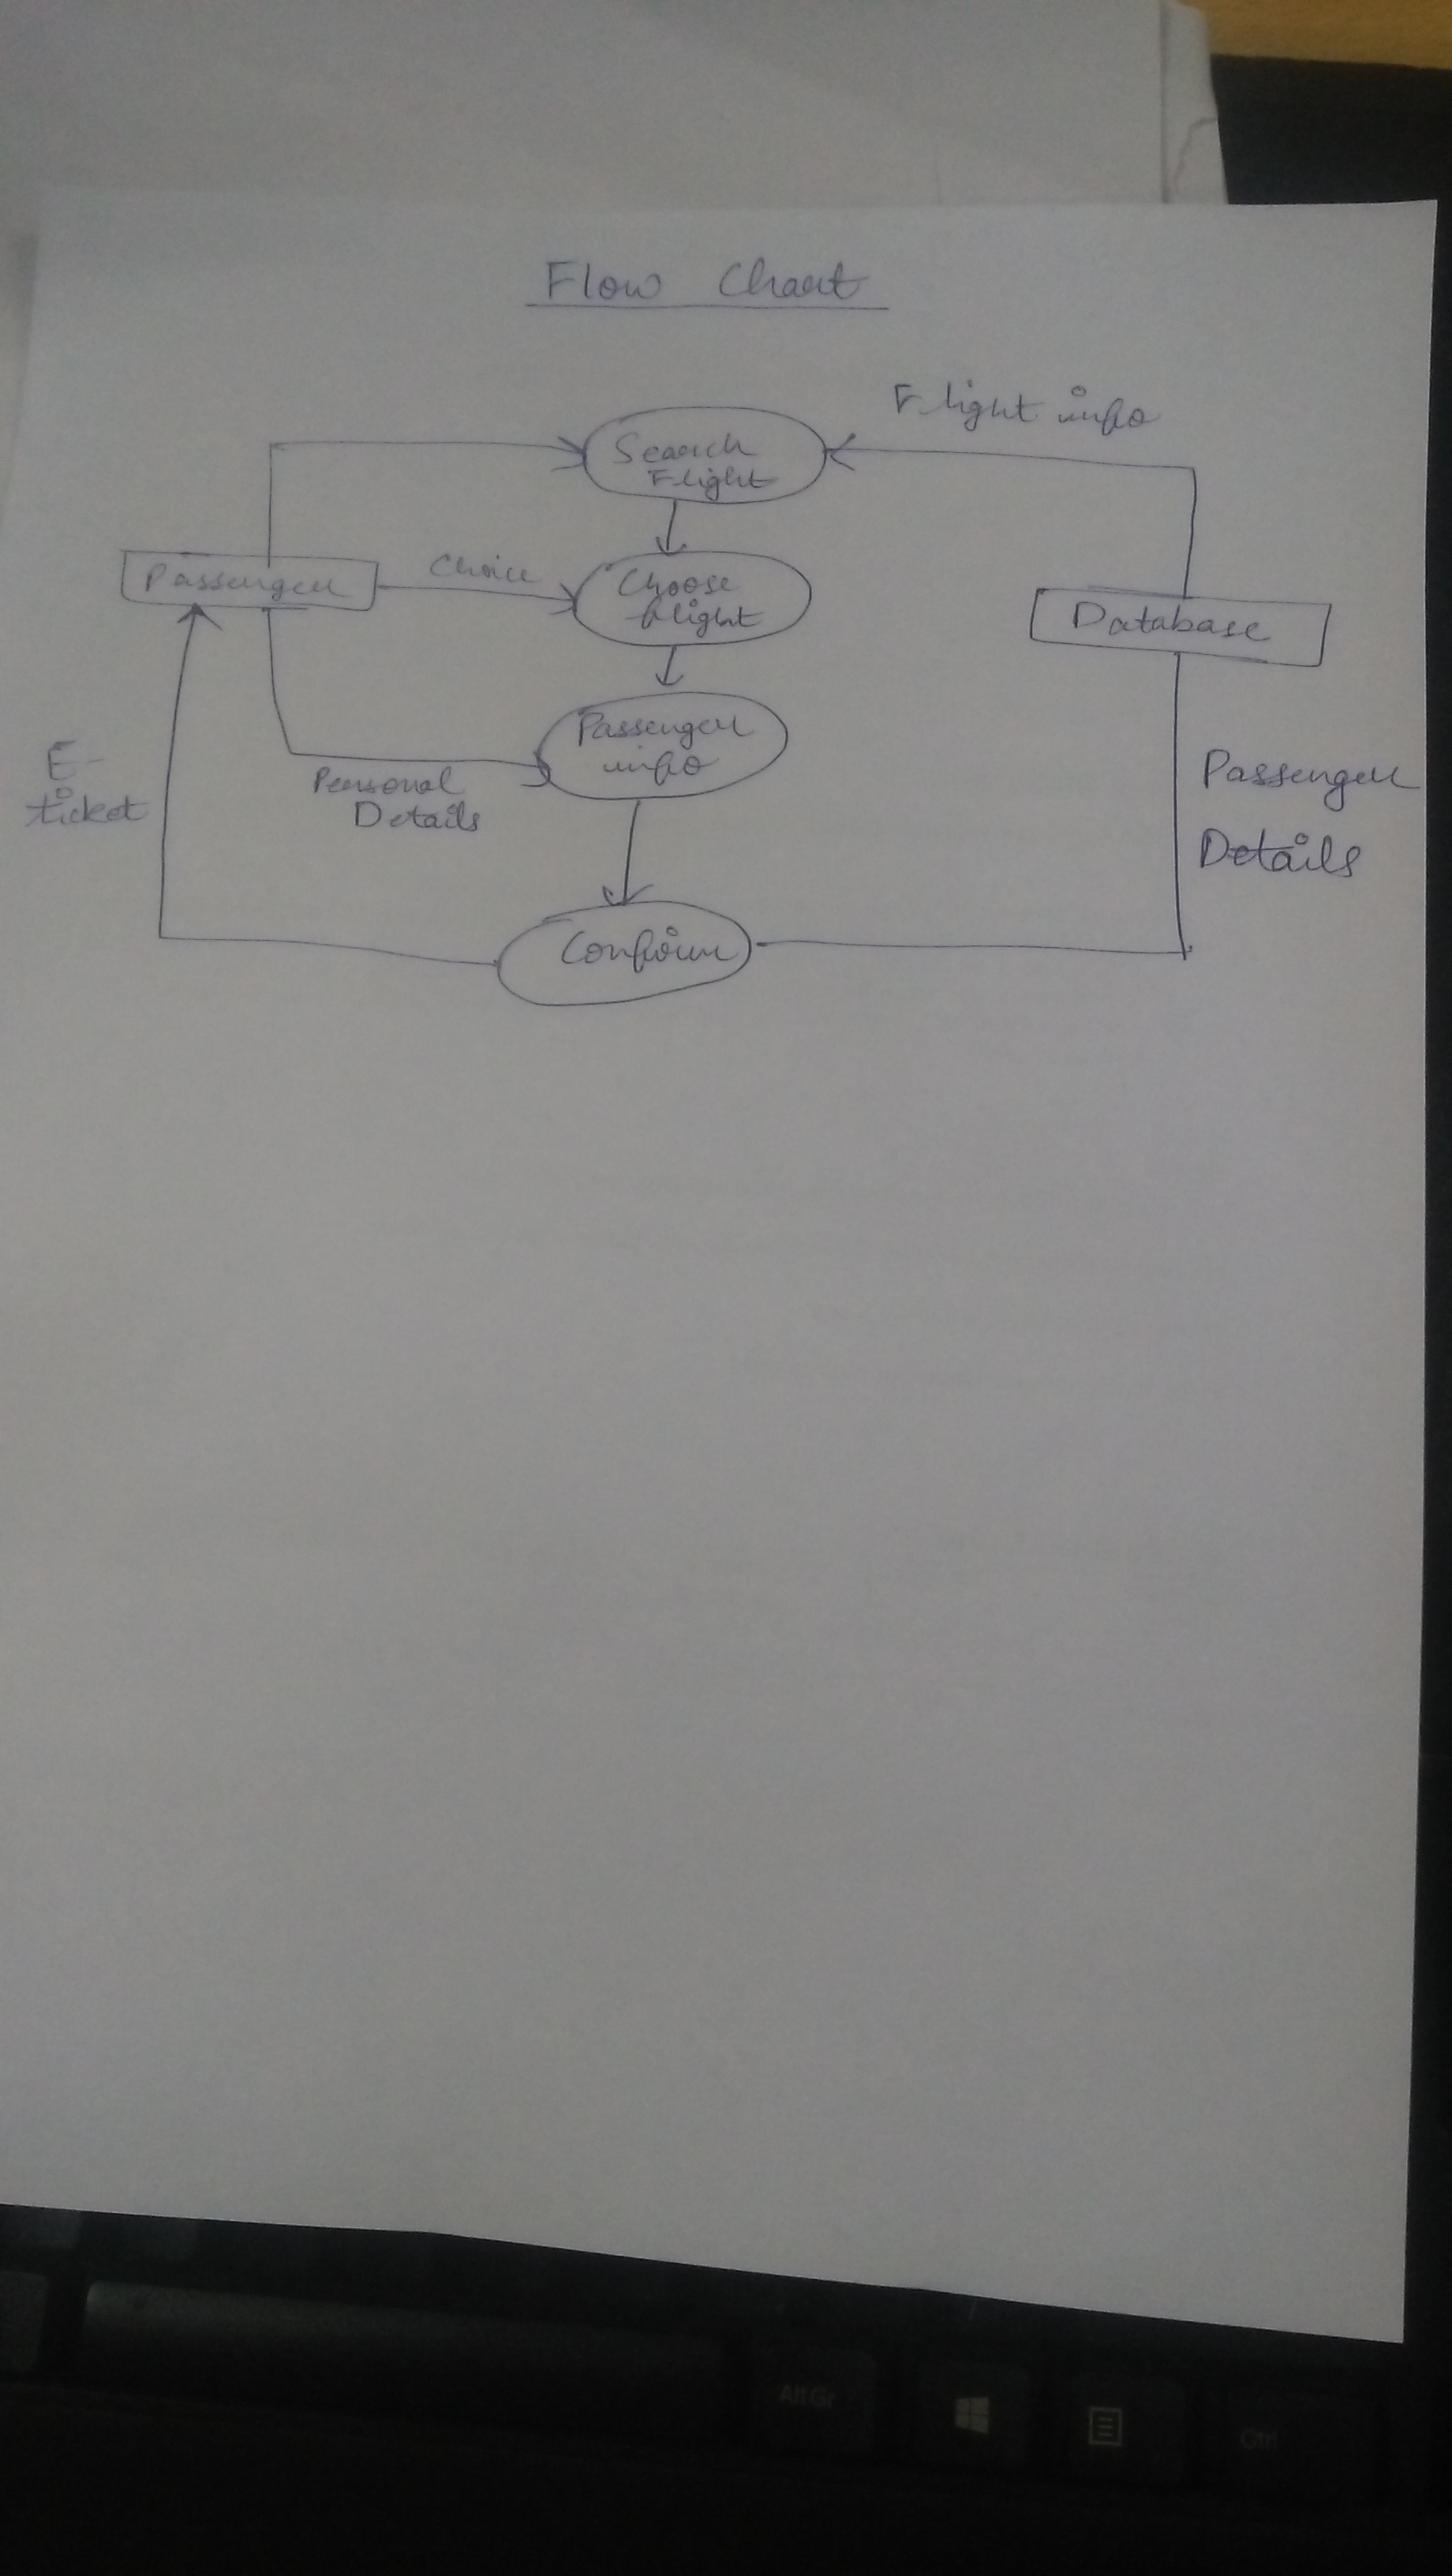 Flow Chart
Flight info
Search
Flight
Passenger
Choice
Choose
flight
Database
Passenger
info
Personal
Details
E-
ticket
Passenger
Details
Confirm
Alt Gr
Ctrl